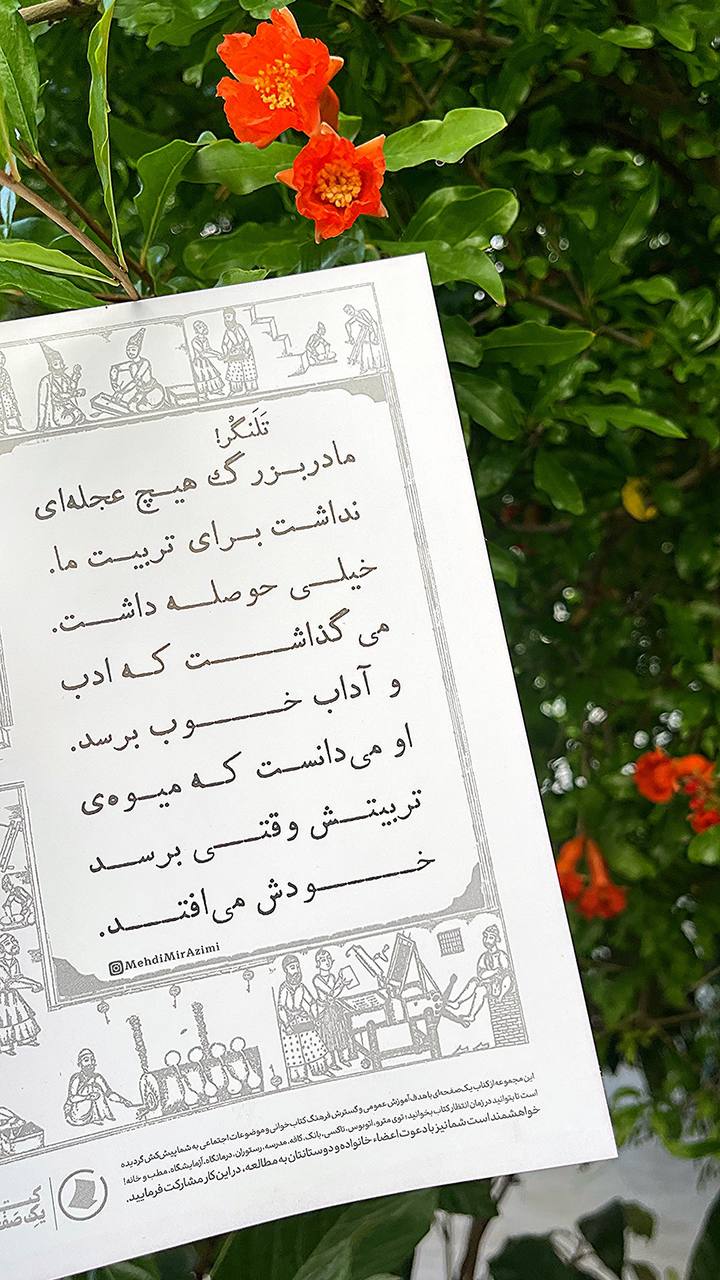 تَلَنگُر!
مادربزرگ هیچ عجله‌ای
نداشت برای تربیت ما.
خیلی حوصله داشت.
می گذاشت که ادب
و آداب خوب برسد.
او می‌دانست که میوه‌ی
تربیتش وقتی برسد
خودش می‌افتد.
MehdiMirAzimi
این مجموعه از کتاب یک‌صفحه‌ای با هدف آموزش عمومی و گسترش فرهنگ کتاب‌خوانی و موضوعات اجتماعی به شما پیش‌کش گردیده
است تا بتوانید در زمان انتظار کتاب بخوانید؛ توی مترو، اتوبوس، تاکسی، بانک، کافه، مدرسه، رستوران، درمانگاه، آزمایشگاه، مطب و خانه!
خواهشمند است شما نیز با دعوت اعضاء خانواده و دوستانتان به مطالعه، در این کار مشارکت فرمایید.